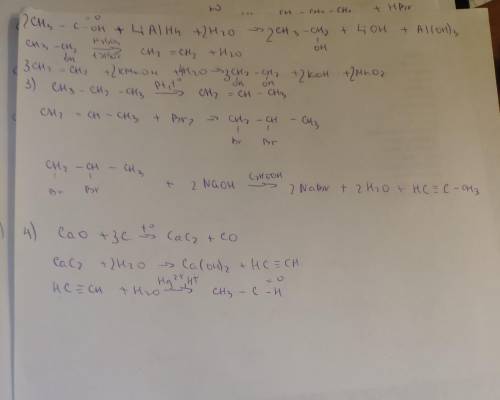 ... CH - CH₂ - CH₃ + HBr
2CH₃ - C =O OH + LiAlH₄ + 2H₂O → 2CH₃ - CH₂ OH + LiOH + Al(OH)₃
CH₃ - CH₂ OH H₂SO₄ → CH₂ = CH₂ + H₂O
3CH₂ = CH₂ + 2KMnO₄ + 4H₂O → 3CH₂ - CH₂ OH OH + 2KOH + 2MnO₂
3) CH₃ - CH₂ - CH₃ Pt, t° → CH₂ = CH - CH₃
CH₂ = CH - CH₃ + Br₂ → CH₂ - CH - CH₃
Br Br
CH₂ - CH - CH₃
Br Br + 2NaOH C₂H₅OH → 2NaBr + 2H₂O + HC ≡ C - CH₃
4) CaO + 3C t° → CaC₂ + CO
CaC₂ + 2H₂O → Ca(OH)₂ + HC ≡ CH
HC ≡ CH + H₂O Hg²⁺, H⁺ → CH₃ - C =O H